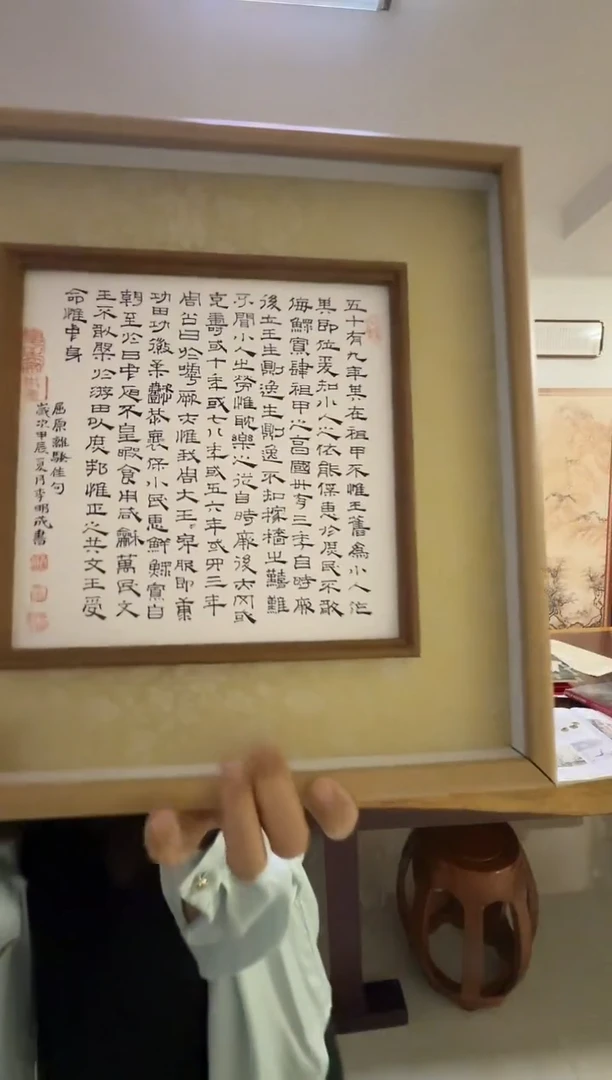 五十有九年其在祖甲不惟王舊為小人作
其即位爰知小人之依能保惠於庶民不敢
侮鰥寡肆祖甲之享國卅有三年自時厥
後立王生則逸生則逸不知稼穡之艱難
不聞小人之勞惟耽樂之從自時厥後亦罔或
克壽或十年或七八年或五六年或四三年
周公曰於嘑厥亦惟我周大王。卑服即康
功田功徽柔懿恭裹保小民惠鮮鰥寡自
朝至於日中昃不皇暇食用咸龢萬民文
王不敢槃於游田以庶邦惟正之共文王受
命惟中身
屈原離騷佳句
歲次甲辰夏月李明成書